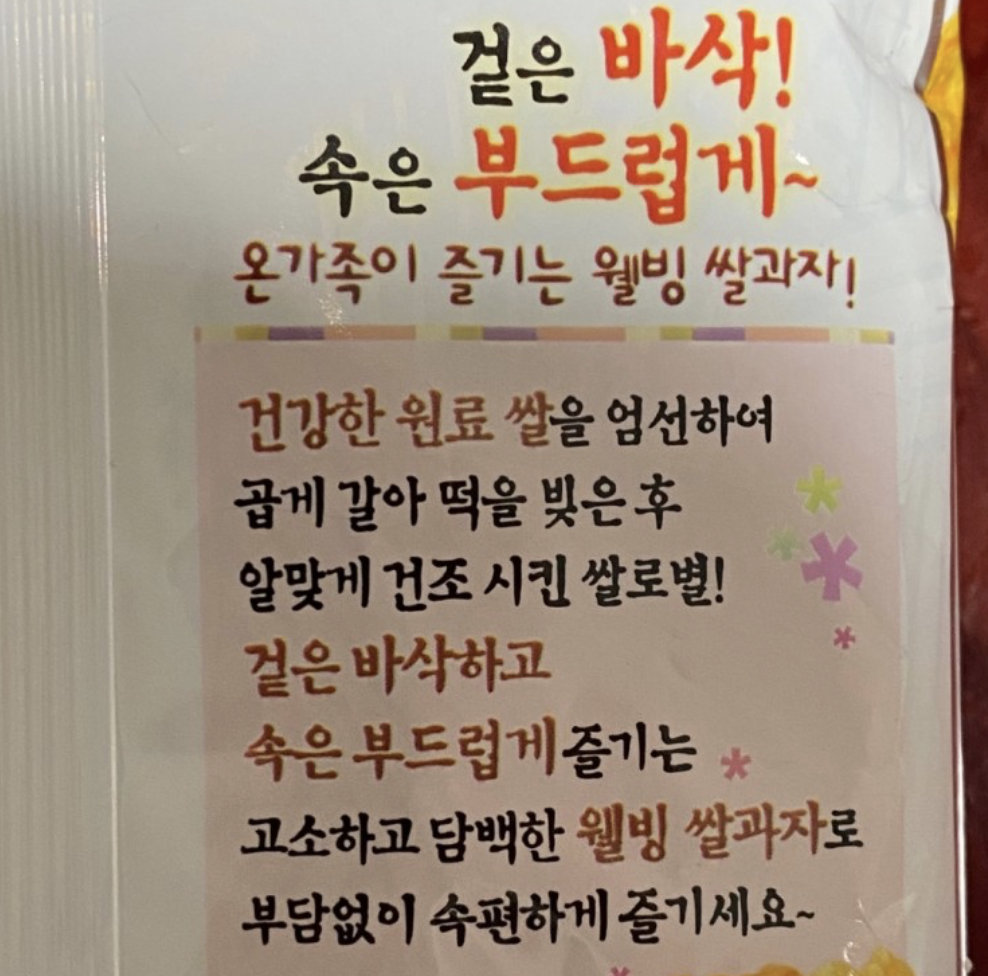 겉은 바삭!
속은 부드럽게~
온가족이 즐기는 웰빙 쌀과자!
건강한 원료 쌀을 엄선하여
곱게 갈아 떡을 빚은 후
알맞게 건조 시킨 쌀로별!
겉은 바삭하고
속은 부드럽게 즐기는
고소하고 담백한 웰빙 쌀과자로
부담없이 속편하게 즐기세요~